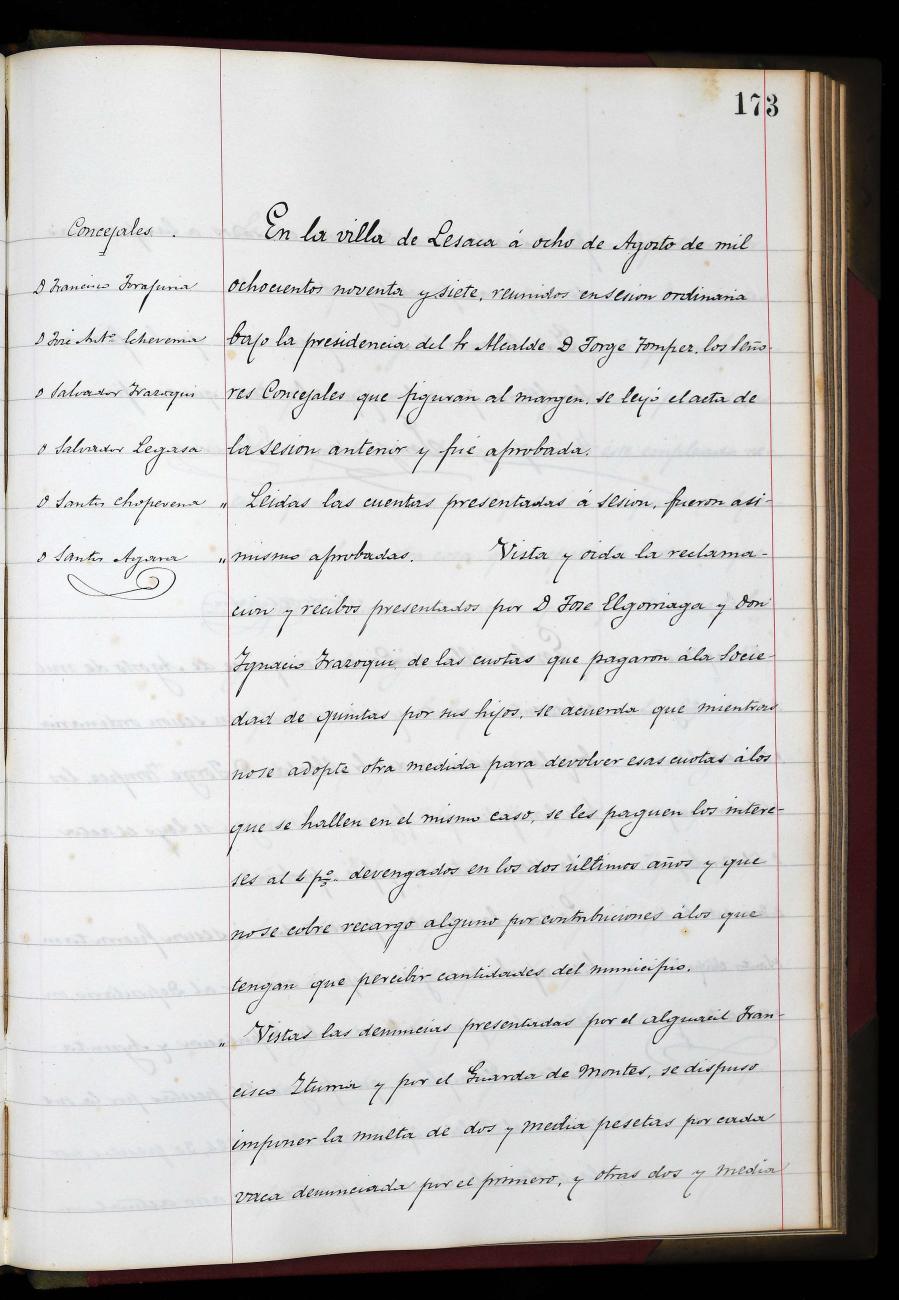 173
Concejales.
D Francisco
D José Anto Echeverria
D Salvador Irazoqui
D Salvador Legasa
D Santos
D Santos
En la villa de Lesaca á ocho de Agosto de mil
ochocientos noventa y siete, reunidos en sesion ordinaria
bajo la presidencia del Sr Alcalde D Jorge los Seño-
res Concejales que figuran al margen, se leyó el acta de
la sesion anterior y fué aprobada.
" Leidas las cuentas presentadas á sesion, fueron asi-
" mismo aprobadas. Vista y oida la reclama-
cion y recibos presentados por D Jose Elgorriaga y Don
Ygnacio Irazoqui, de las cuotas que pagaron á la Socie-
dad de quintas por sus hijos, se acuerda que mientras
no se adopte otra medida para devolver esas cuotas á los
que se hallen en el mismo caso, se les paguen los intere-
ses al 4 p% devengados en los dos últimos años y que
no se cobre recargo alguno por contribuciones á los que
tengan que percibir cantidades del municipio.
" Vistas las denuncias presentadas por el alguacil Fran-
cisco Yturria y por el Guarda de Montes, se dispuso
imponer la multa de dos y media pesetas por cada
vaca denunciada por el primero, y otras dos y media